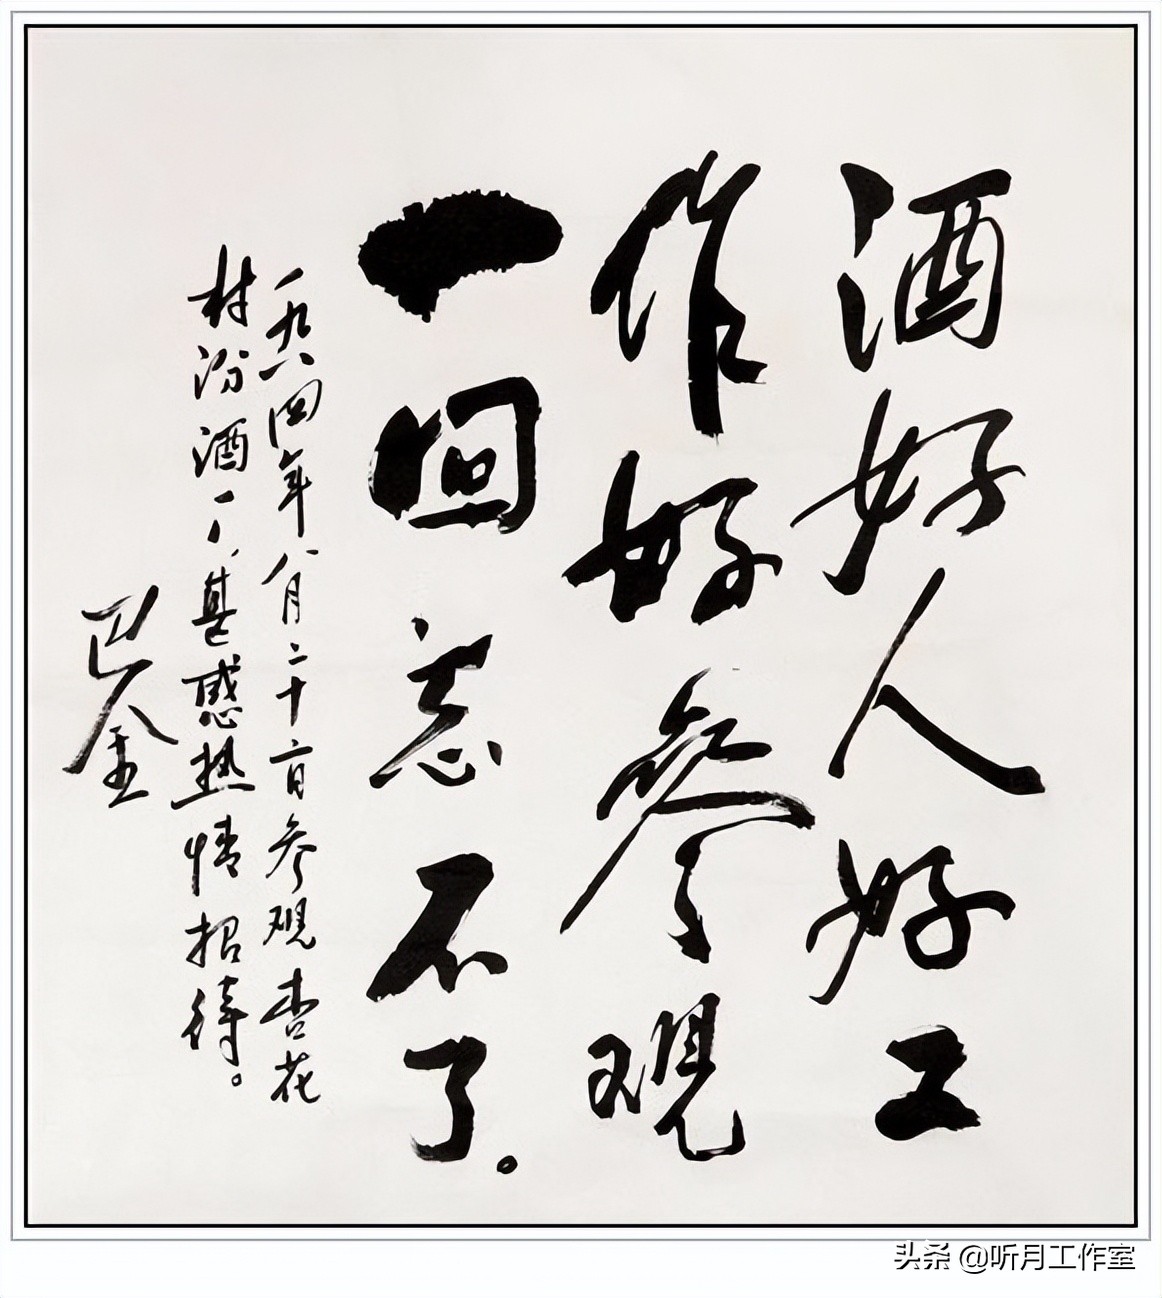 酒好人好工
作好參观
一回忘不了。
一九八四年八月二十六日参观杏花
村汾酒厂，甚感热情招待。
巴金
头条 @听月工作室